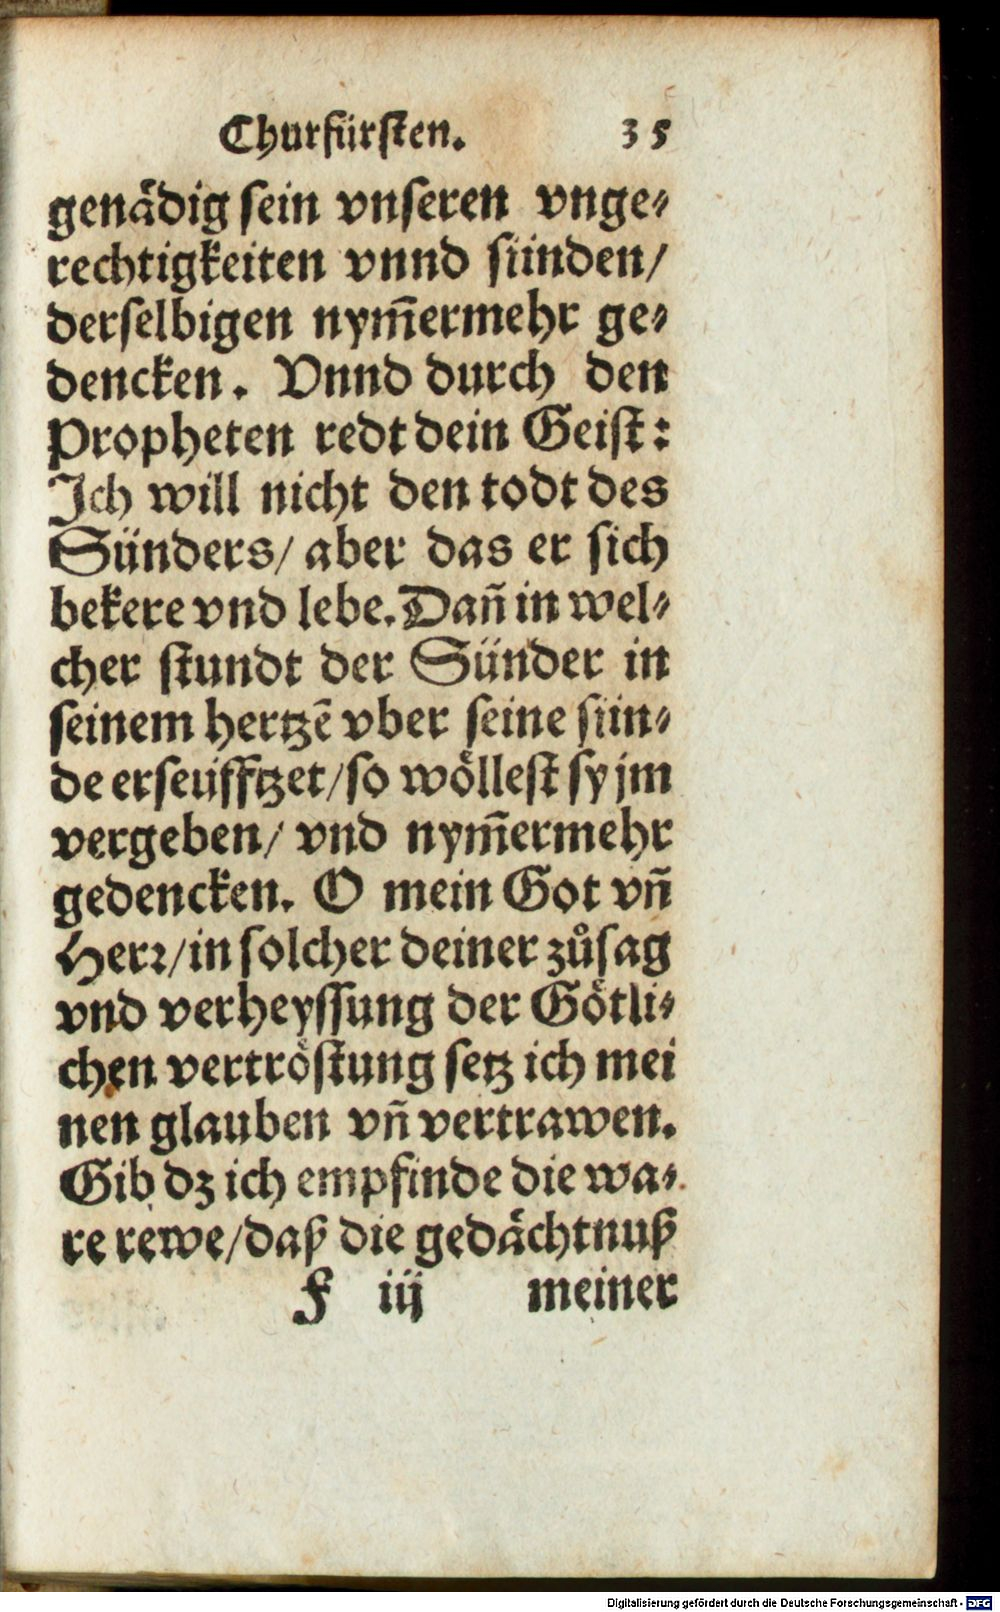 Churfürsten. 35
genådig sein vnseren vnge⸗
rechtigkeiten vnnd sünden/
derselbigen nym̃ermehr ge⸗
dencken. Vnnd durch den
Propheten redt dein Geist:
Ich will nicht den todt des
Sünders/ aber das er sich
bekere vnd lebe. Dañ in wel⸗
cher stundt der Sünder in
seinem hertzē vber seine sün⸗
de erseüfftzet/ so wöllest sy jm
vergeben/ vnd nym̃ermehr
gedencken. O mein Got vñ
Herr/ in solcher deiner zůsag
vnd verheyssung der Götli⸗
chen vertröstung setz ich mei
nen glauben vñ vertrawen.
Gib dz ich empfinde die wa⸗
re rewe/ daß die gedächtnuß
F iij meiner
Digitalisierung gefördert durch die Deutsche Forschungsgemeinschaft - DFG